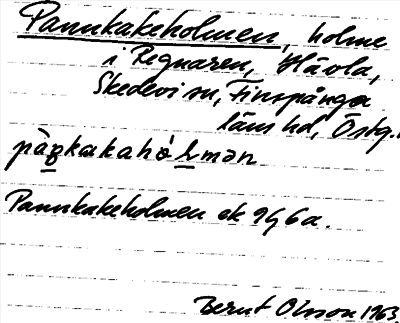 Pannkakeholmen, holme
i Regnaren, Hävla,
Skedevi sn, Finspånga
läns hd, Östg.
Pannkakeholmen ek 9G6a.
Bernt Olsson 1963.